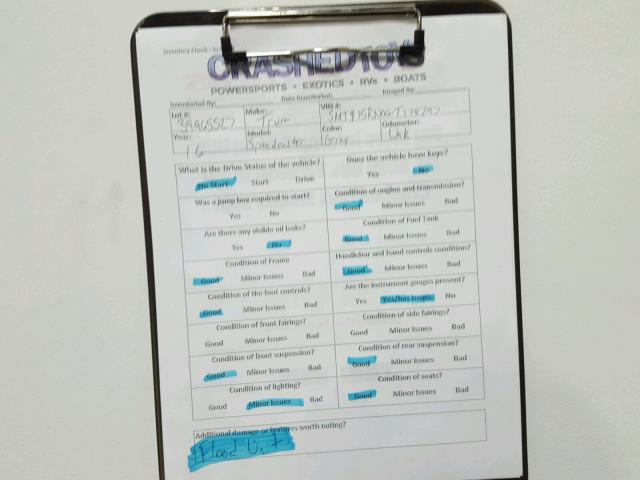 CRASHEDTOYS
POWERSPORTS • EXOTICS • RVs • BOATS
Inventoried By: Date Inventoried: Imaged By:
Lot #: Make: VIN #:
Year: Model: Color: Odometer:
16 Speedmaster Gray Unk
What is the Drive Status of the vehicle? Does the vehicle have keys?
No Start Start Drive Yes No
Was a jump box required to start? Condition of engine and transmission?
Yes No Good Minor Issues Bad
Are there any visible oil leaks? Condition of Fuel Tank
Yes No Good Minor Issues Bad
Condition of Frame Handlebar and hand controls condition?
Good Minor Issues Bad Good Minor Issues Bad
Condition of the foot controls? Are the instrument guages present?
Good Minor Issues Bad Yes Yes/has issues No
Condition of front fairings? Condition of side fairings?
Good Minor Issues Bad Good Minor Issues Bad
Condition of front suspension? Condition of rear suspension?
Good Minor Issues Bad Good Minor Issues Bad
Condition of lighting? Condition of seats?
Good Minor Issues Bad Good Minor Issues Bad
Additional damage or features worth noting?
Flood Unit